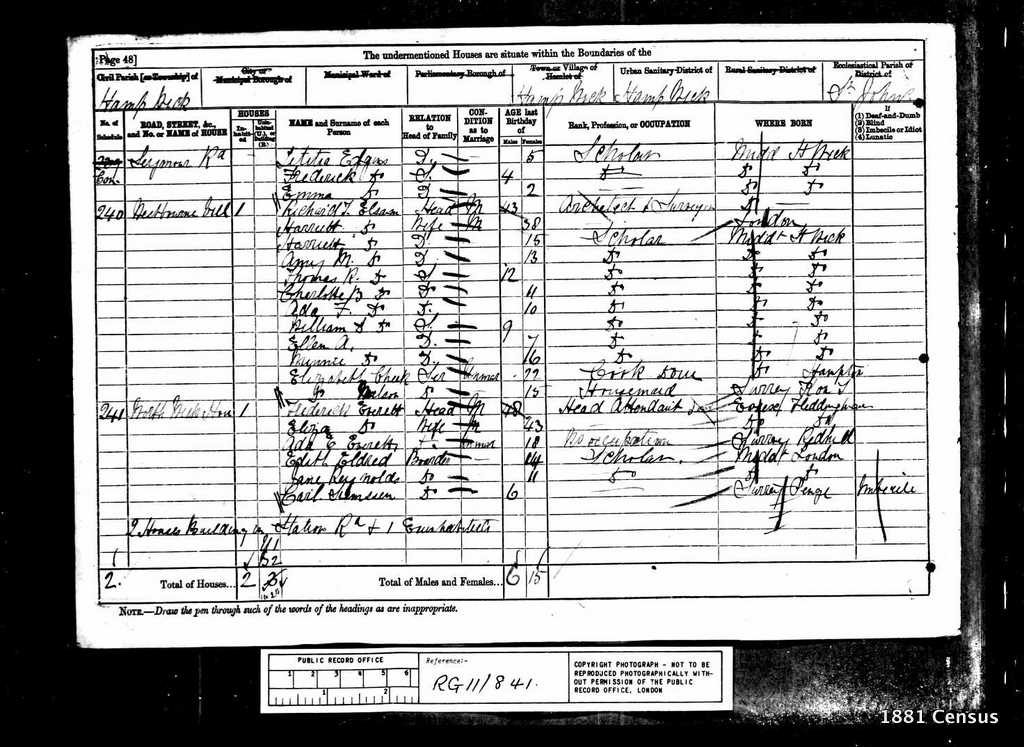 The undermentioned Houses are situate within the Boundaries of the
Page 48]
Civil Parish [or Township] of
City or Municipal Borough of
Municipal Ward of
Parliamentary Borough of
Town or Village of Hamlet of
Urban Sanitary District of
Rural Sanitary District of
Ecclesiastical Parish of District of
Hamp Wick Hamp Wick Hamp Wick St Johns
No. of Schedule
ROAD, STREET, &c., and No. or NAME of HOUSE
HOUSES
Inhabited
Uninhabited (U.), or Building (B.)
NAME and Surname of each Person
RELATION to Head of Family
CONDITION as to Marriage
AGE last Birthday of
Males Females
Rank, Profession, or OCCUPATION
WHERE BORN
If
(1) Deaf-and-Dumb
(2) Blind
(3) Imbecile or Idiot
(4) Lunatic
Seymour Rd Letitia D. 5 Scholar Midd H Wick
Con. Frederick Do S. 4 Do Do Do
Emma Do D 2 Do Do
240 1 Richard T. Elsam Head M 43 Architect & Surveyor Do
Harriett Do Wife M 38 London
Harriett Do D. 15 Scholar Middx H Wick
Amy M. Do D. 13 Do Do Do
Thomas R. Do S 12 Do Do Do
Charlotte B Do D 11 Do Do Do
Ada F. Do D. 10 Do Do Do
William Do S. 9 Do Do Do
Ellen A. D. 7 Do Do Do
Minnie Do D. 16 Do Do Do
Elizabeth Cheek Ser Unmar 22 Cook Dom Do Hampton
Do 15 Housemaid Surrey
241 1 Frederick Everett Head M 48 Head Attendant Essex
Eliza Do Wife M 43 Do Do
Ada E Everett Unmar 18 No occupation Surrey Redhill
Edith Eldred Boarder 14 Scholar. Middx London
Jane Reynolds Do 11 Do Do Do
Carl Do 6 Surrey Penge Imbecile
2 Houses Building in Station Rd & 1
2. Total of Houses... 2
Total of Males and Females... 6 15
NOTE.—Draw the pen through such of the words of the headings as are inappropriate.
PUBLIC RECORD OFFICE
1 2 3 4 5 6
1 2
Reference:-
RG11/841.
COPYRIGHT PHOTOGRAPH - NOT TO BE
REPRODUCED PHOTOGRAPHICALLY WITH-
OUT PERMISSION OF THE PUBLIC
RECORD OFFICE, LONDON
1881 Census